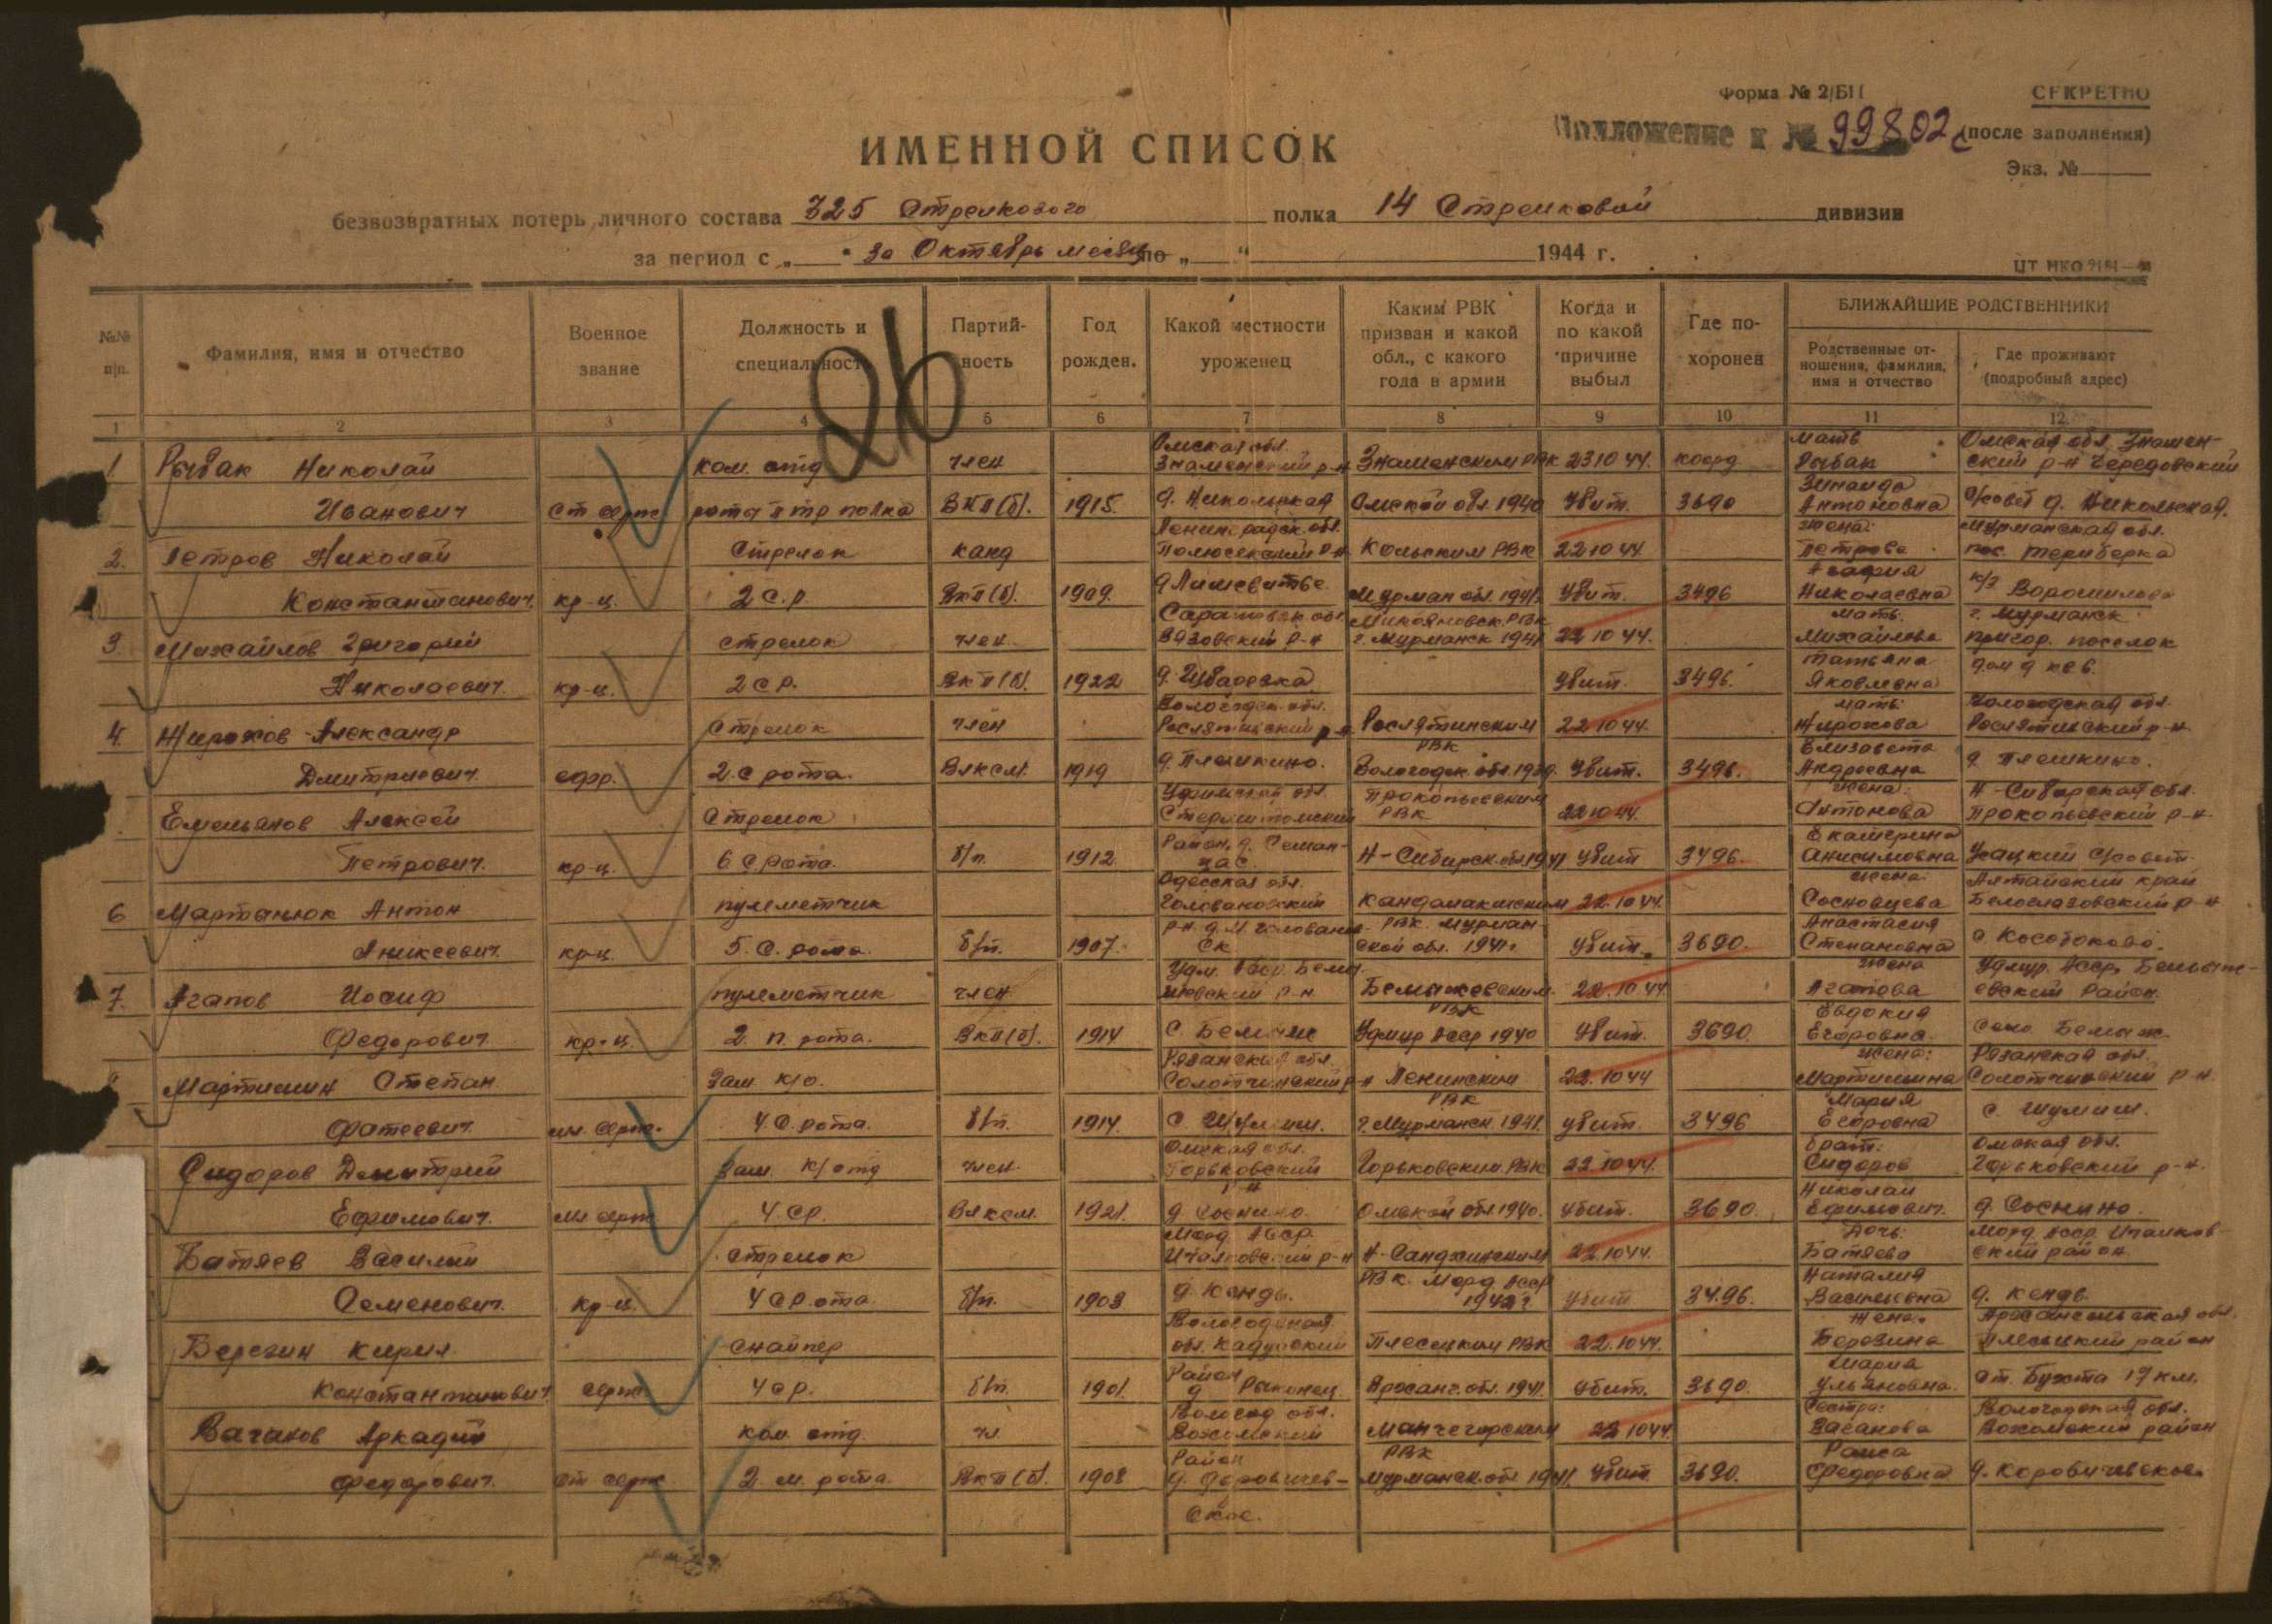 Форма № 2/БП
СЕКРЕТНО
Приложение к № 99802с
(после заполнения)
Экз. №
ИМЕННОЙ СПИСОК
безвозвратных потерь личного состава 325 Стрелкового полка 14 Стрелковой дивизии
за период с „ “ за Октябрь месяц по „ “ 1944 г.
86
№№ п/п.
Фамилия, имя и отчество
Военное звание
Должность и специальность
Партий-ность
Год рожден.
Какой местности уроженец
Каким РВК призван и какой обл., с какого года в армии
Когда и по какой причине выбыл
Где по-хоронен
БЛИЖАЙШИЕ РОДСТВЕННИКИ
Родственные от-ношения, фамилия, имя и отчество
Где проживают (подробный адрес)
1 2 3 4 5 6 7 8 9 10 11 12
Омская обл. мать Омская обл. Знамен-
1. Рыбак Николай ком. отд член Знаменский р-н Знаменским РВК 23 10 44. коорд Рыбак ский р-н Чередовский
Зинаида
Иванович ст серж рота птр полка ВКП(б). 1915. д. Никольская Омской обл 1940 убит. 3690 Антоновна с/совет д. Никольская.
Ленинградск. обл. жена: Мурманская обл.
2. Петров Николай Стрелок канд р-н Кольским РВК 22 10 44 Петрова пос. Териберка
Константинович. кр-ц. 2 с.р. ВКП(б). 1909. Мурман обл. 1941. убит. 3496 Николаевна к/з Ворошилова
Саратовск. обл. Микояновск. РВК мать: г. Мурманск
3 Михайлов Григорий стрелок член Вязовский р-н г. Мурманск 1941 22 10 44. Михайлова пригор. поселок
Татьяна
Николаевич. кр-ц. 2 с р. ВКП(б). 1922 убит. 3496. Яковлевна дом
Вологодск. обл. мать: Вологодская обл.
4. Жирохов Александр Стрелок член Рослятинский р-н Рослятинским 22 10 44. Жирохова Рослятинский р-н.
РВК Елизавета
Дмитриевич. ефр. 2. с рота. Влксм. 1919 д. Плешкино. Вологодск. обл. 1939. убит. 3496. Андреевна д. Плешкино.
Уфимской обл. Прокопьевским жена: Н-Сибирская обл.
Емельянов Алексей Стрелок РВК 22 10 44. Антонова Прокопьевский р-н.
Район, д. Екатерина
Петрович. кр-ц. 6 с рота. б/п. 1912. Н-Сибирск. обл. 1941 убит 3496. Анисимовна с/совет
Одесская обл. жена: Алтайский край
6 Мартынюк Антон пулеметчик Головановский Кандалакшским 22.10 44. Сосновцева Белоглазовский р-н
РВК. Мурман- Анастасия
Аникеевич. кр-ц. 5. с. рота. б/п. 1907. ской обл. 1941г убит. 3690. Степановна
Удм. жена Удмур. Асср,
7. Агапов Иосиф пулеметчик член р-н Бемыжевским 22.10 44 Агапова евский район
РВК Евдокия
Федорович. кр-ц. 2. п. рота. ВКП(б). 1914 с Бемыж Удмур Асср 1940 убит. 3690. Егоровна. село Бемыж.
Рязанская обл. жена: Рязанская обл.
Мартишин Степан зам к/о. Солотчинский р-н Ленинским 22.10 44 Мартишина Солотчинский р-н.
РВК Мария
Фатеевич. мл. серж. 4. с. рота. б/п. 1914. г. Мурманск 1941. убит. 3496 Егоровна
Омская обл. брат: Омская обл.
Сидоров Дмитрий зам. к/отд член. Горьковский Горьковским. РВК 22 10 44. Сидоров Горьковский р-н.
р-н Николай
Ефимович. мл серж 4. ср. Влксм. 1921. д Соснино. Омской обл 1940. убит. 3690. Ефимович. д. Соснино.
Морд Асср Дочь: Морд Асср Ичалков-
Батяев Василий Стрелок Ичалковский р-н 22.10 44. Батяева ский район
РВК. Морд Асср Наталия
Семенович. кр-ц. 4 с Рота. б/п. 1908 д. Кендя. убит 3496. Васильевна д. Кендя
Вологодская жена. Архангельская обл.
Березин Кирил снайпер обл. Кадуйский Плесецким РВК 22.10 44. Березина Плесецкий район
Район Мария
Константинович серж. 4 с р. б/п. 1901. Арханг. обл. 1941. убит. 3690. Ульяновна. 17 км.
Вологод обл. сестра: Вологодская обл.
Аркадий ком. отд. чл Вохомский Мончегорским 22 10 44. Вохомский район
Район РВК Раиса
Федорович. ст серж 2. м. рота. ВКП(б). 1908 Мурманск. обл 1941. убит. 3690. Федоровна
ское.